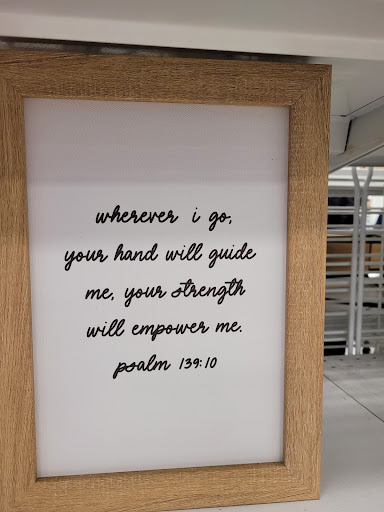 wherever i go,
your hand will guide
me, your strength
will empower me.
psalm 139:10